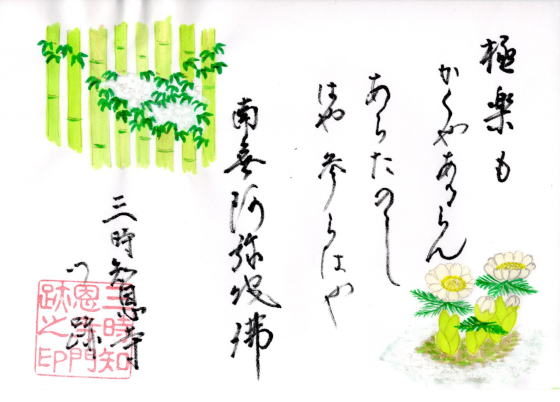 極楽も
かくやあるらん
あらたのし
はや参らはや
南無阿弥陀佛
三時知恩寺
门跡
三時知
恩寺門
跡之印